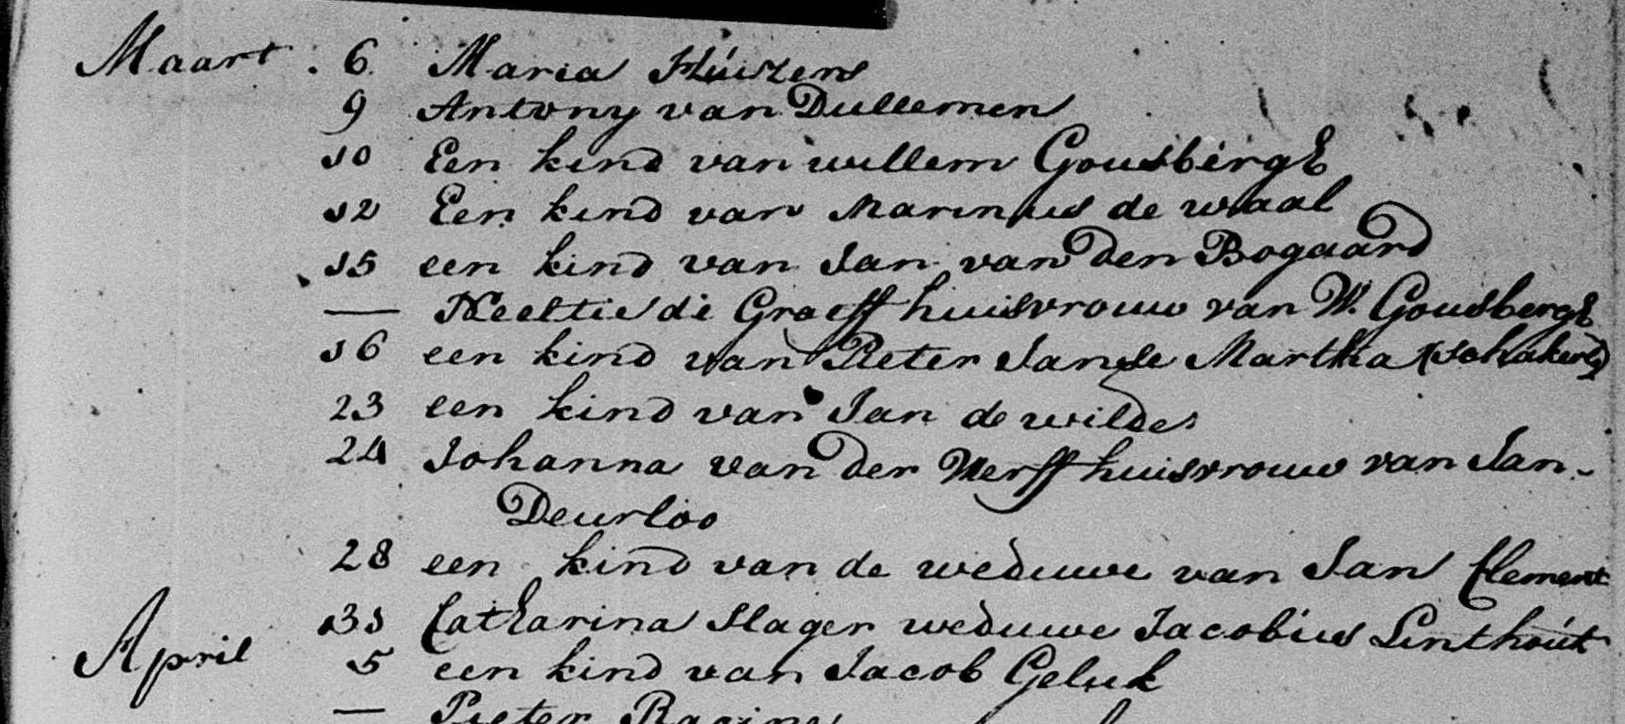 Maart. 6 Maria Huizens
9 Antony van Dullemen
10 Een kind van willem Gousbergh
12 Een kind van Marinus de waal
15 een kind van Jan van den Bogaard
— Neeltie di Graeff huisvrouw van W. Gousbergh
16 een kind van Pieter Janse Martha (schakerly)
23 een kind van Jan de wilde
24 Johanna van der Werff huisvrouw van Jan
Deurloo
28 een kind van de weduwe van Jan Clement
31 Catharina Slager weduwe Jacobius Linthout
April 5 een kind van Jacob Geluk
— Pieter Racine